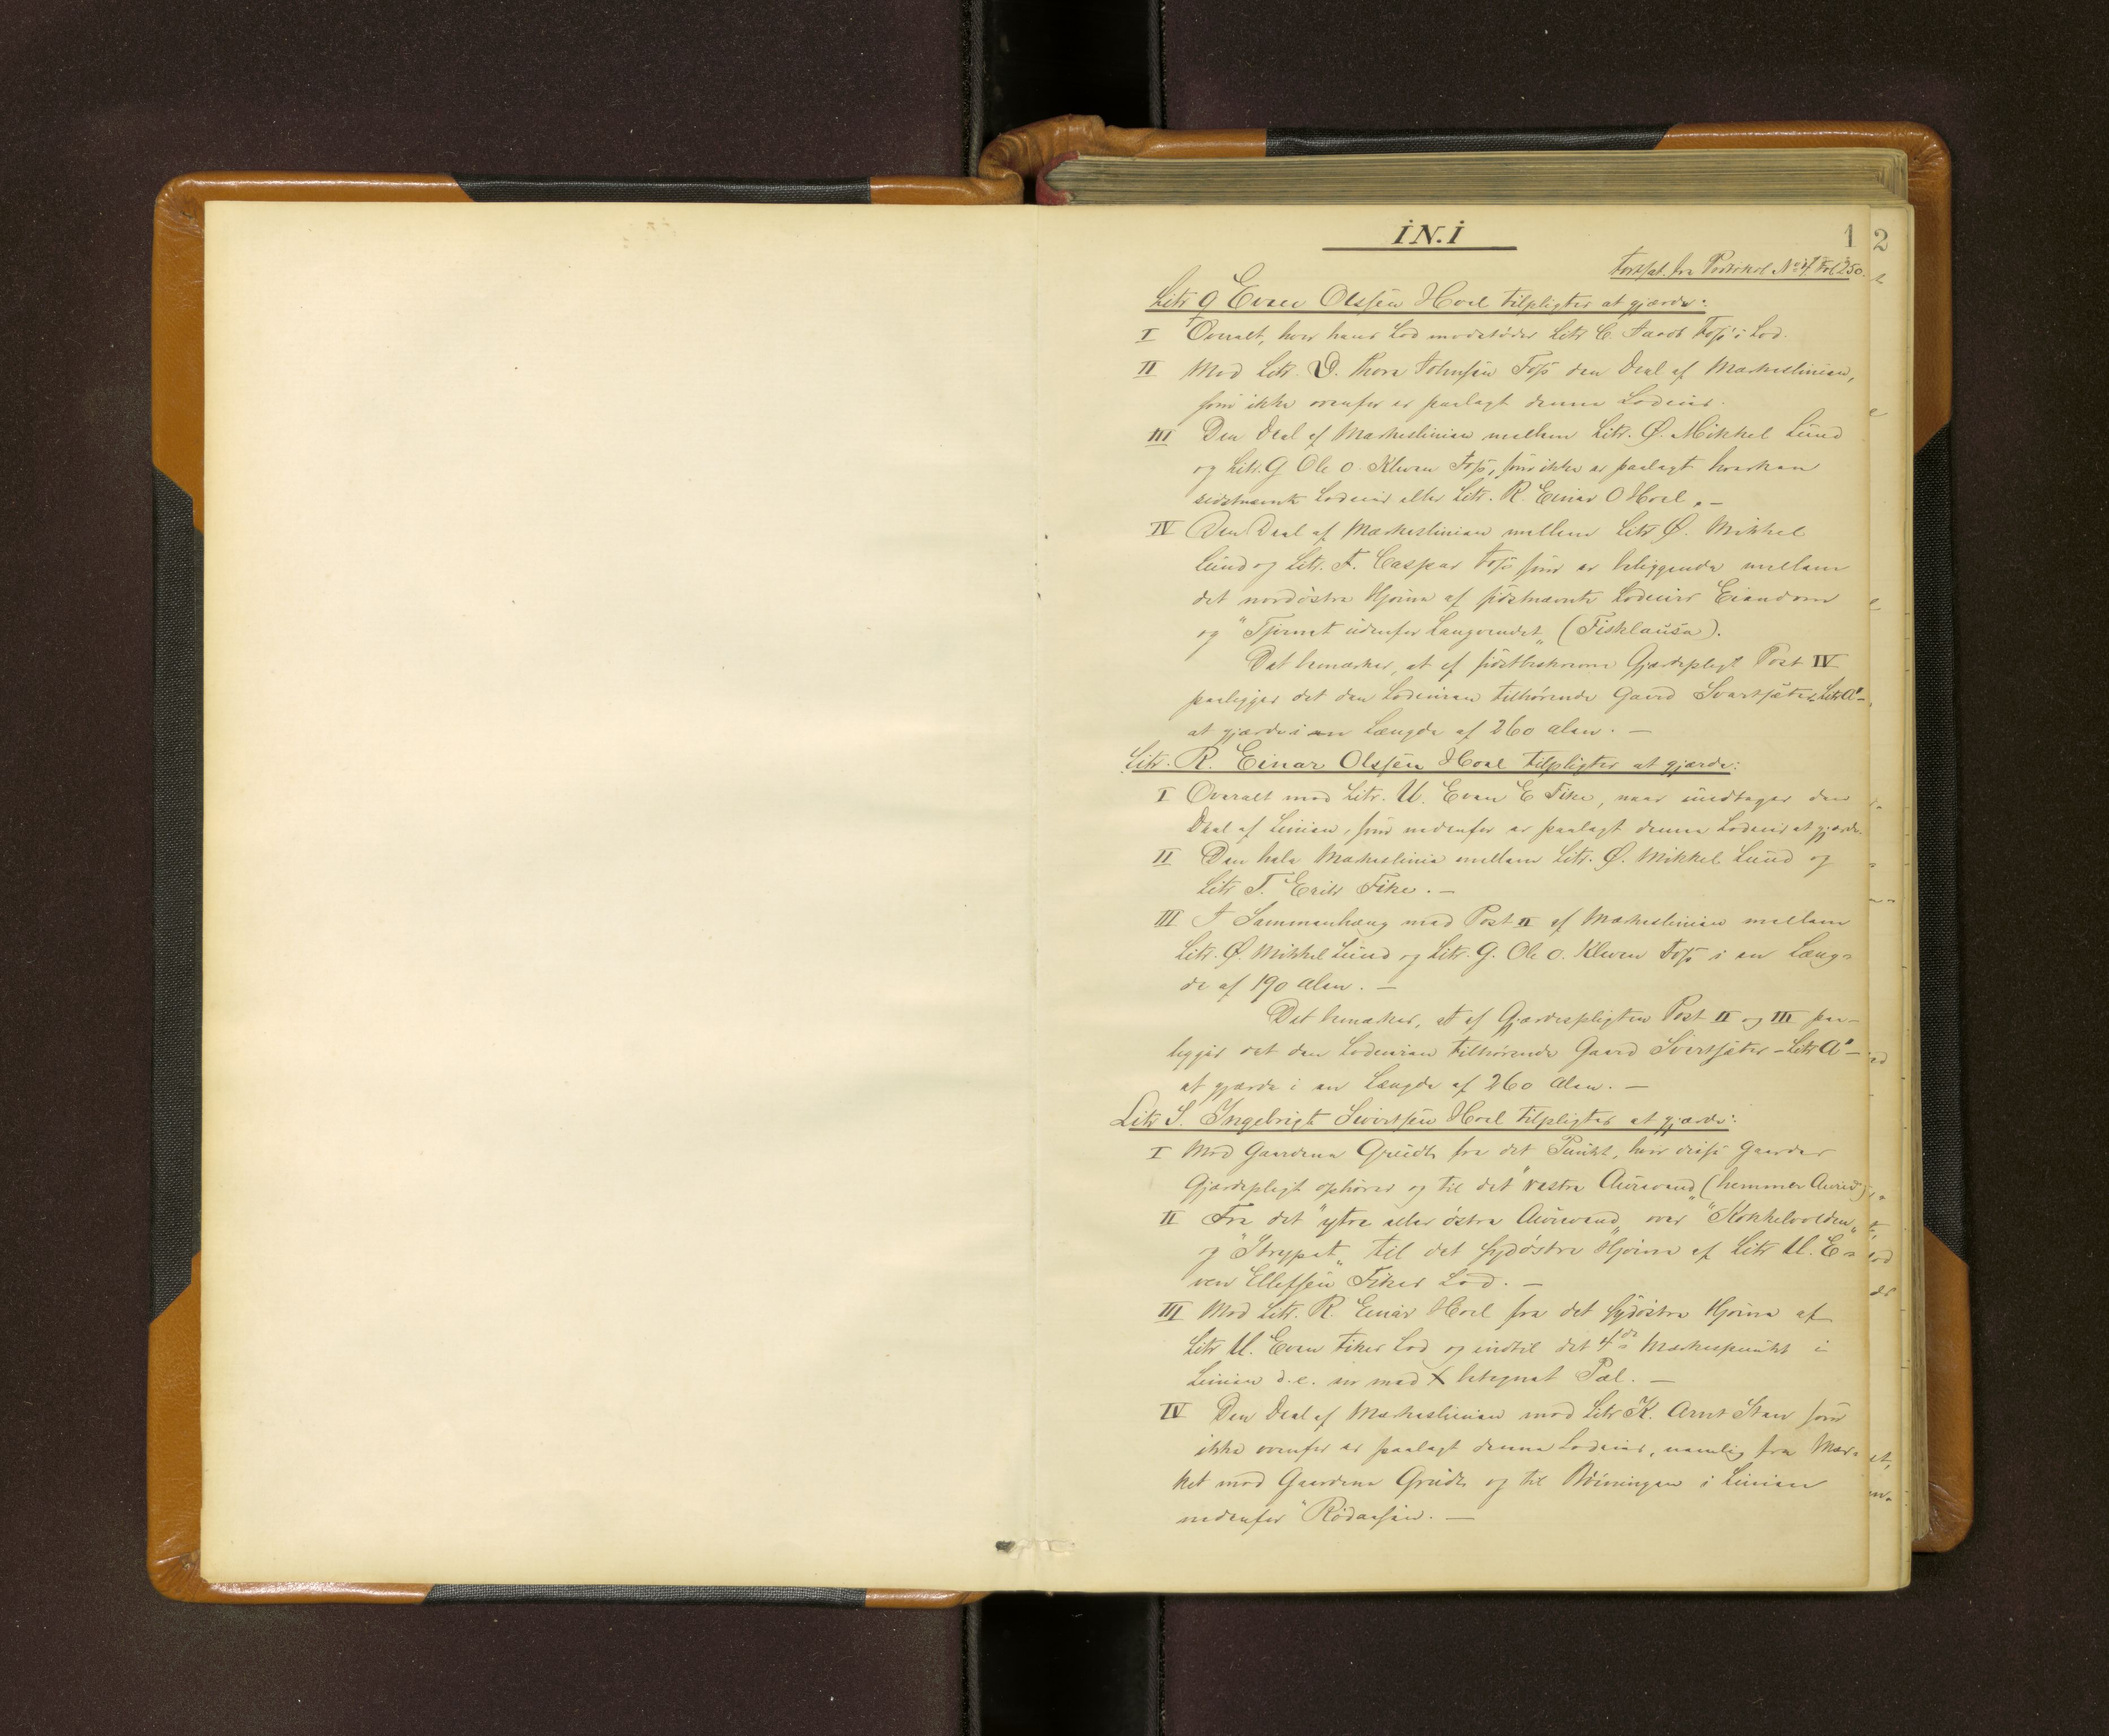 i N. i
1 2
Fortsat fra Protokol No 4 Fol 250.
Litr Q Even Olssen Hoel tilpligtes at gjærde:
I Overalt, hvor hans Lod modstøder Litr C. Jacob Foss's Lod.
II Mod Litr. D. Thore Johnsen Foss den Deel af Markeslinien,
som ikke ovenfor er paalagt denne Lodeier.
III Den Deel af Markeslinien mellem Litr. Ø. Mikkel Lund
og Litr. G Ole O. Kleven Foss, som ikke er paalagt hverken
sidstnævnte Lodeier eller Litr. R. Einar O Hoel. —
IV Den Deel af Mærkeslinien mellem Litr Ø. Mikkel
Lund og Litr. F. Caspar Foss som er beliggende mellem
det nordøstre Hjørne af sidstnævnte Lodeiers Eiendom
og "Tjernet udenfor Langvendet" (Fisklausa).
Det bemærkes, at af sidstbeskrevne Gjærdepligt Post IV
paaligger det den Lodeieren tilhørende Gaard Svartsæter - Litr A' -
at gjærde i en Længde af 260 Alen. —
Litr. R. Einar Olssen Hoel tilpligtes at gjærde:
I Overalt mod Litr. U. Even E Fike, naar undtages den
Deel af Linien, som nedenfor er paalagt denne Lodeier at gjærde.
II Den hele Markeslinie mellem Litr. Ø. Mikkel Lund og
Litr T. Erik Fike. —
III I Sammenhæng med Post II af Mærkeslinien mellem
Litr. Ø. Mikkel Lund og Litr. G. Ole O. Kleven Foss i en Læng-
de af 190 Alen. —
Det bemærkes, at af Gjærdespligten Post II og III paa-
ligger det den Lodeieren tilhørende Gaard Svartsæter - Litr A' -
at gjærde i en Længde af 260 Alen. —
Litr S. Ingebrigt Sivertsen Hoel tilpligtes at gjærde:
I Mod Gaardene Grudt fra det Punkt, hvor disse Gaardes
Gjærdepligt ophører og til det "vestre Aurevand" (hemmer Aurevd)
II Fra det "ytre eller østre Aurevand" over "Kokkelvolden"
og "Strypet" til det sydøstre Hjørne af Litr U. E-
ven Ellefsen Fikes Lod. —
III Mod Litr. R. Einar Hoel fra det sydøstre Hjørne af
Litr U. Even Fikes Lod og indtil det 4de Mærkespunkt i
Linien d.e. en med X betegnet Pæl. —
IV Den Deel af Mærkeslinien mod Litr K. Arnt Steen som
ikke ovenfor er paalagt denne Lodeier, nemlig fra Mær-
ket mod Gaardene Grudt og til Bøiningen i Linien
nedenfor "Rødaasen. —